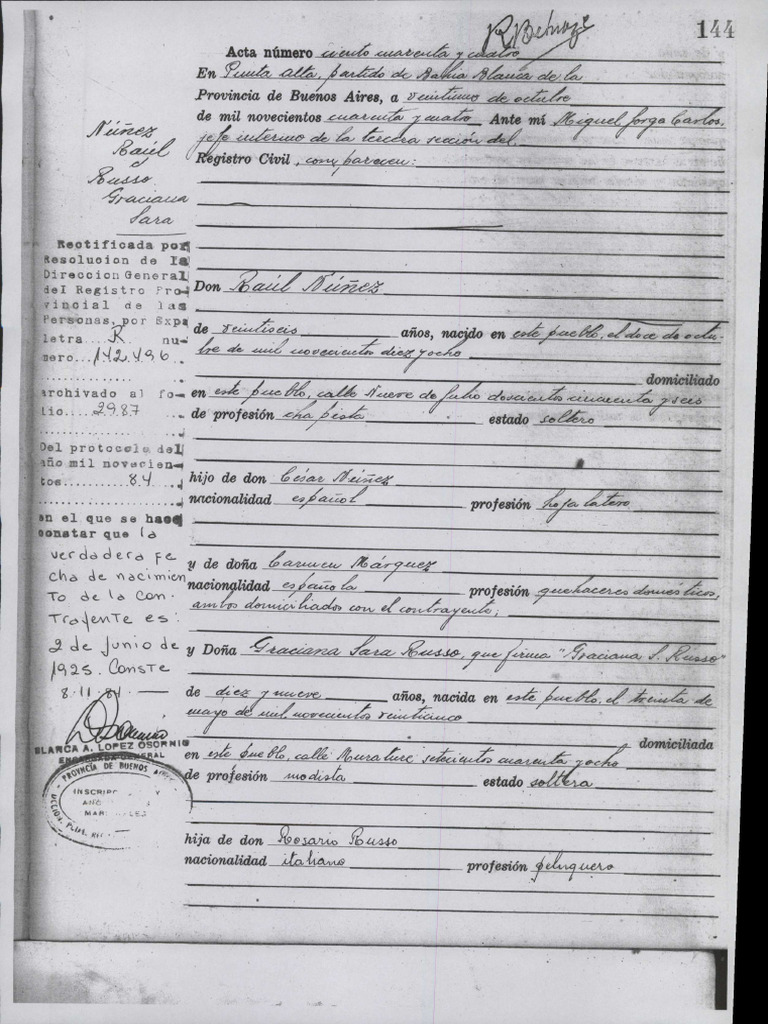 144
Acta número ciento cuarenta y cuatro
En Punta Alta, partido de Bahía Blanca de la
Provincia de Buenos Aires, a veintiuno de octubre
de mil novecientos cuarenta y cuatro Ante mí Miguel Jorge Carlos,
jefe interino de la tercera sección del
Registro Civil, comparecen:
Núñez
Raúl
y
Russo
Graciana
Sara
Rectificada por
Resolucion de la
Direccion General
del Registro Pro-
vincial de las
Personas, por Expe
letra R nu-
mero...142.496
archivado al fo-
lio...2987
Del protocolo del
año mil novecien-
tos...84
en el que se hace
constar que la
verdadera fe
cha de nacimien
to de la con-
trayente es:
2 de Junio de
1925. Conste
8.11.84.—
BLANCA A. LOPEZ OSORNIO
ENCARGADA GENERAL
PROVINCIA DE BUENOS AIRES
INSCRIP
MAR
Don Raúl Núñez
de veintiseis años, nacido en este pueblo, el doce de octu-
bre de mil novecientos diez y ocho
domiciliado
en este pueblo, calle Nueve de Julio doscientos cincuenta y seis
de profesión chapista estado soltero
hijo de don César Núñez
nacionalidad español profesión hojalatero
y de doña Carmen Márquez
nacionalidad española profesión quehaceres domésticos,
ambos domiciliados con el contrayente;
y Doña Graciana Sara Russo, que firma "Graciana S. Russo"
de diez y nueve años, nacida en este pueblo, el treinta de
mayo de mil novecientos veinticinco
domiciliada
en este pueblo, calle Murature setecientos cuarenta y ocho
de profesión modista estado soltera
hija de don Rosario Russo
nacionalidad italiano profesión peluquero